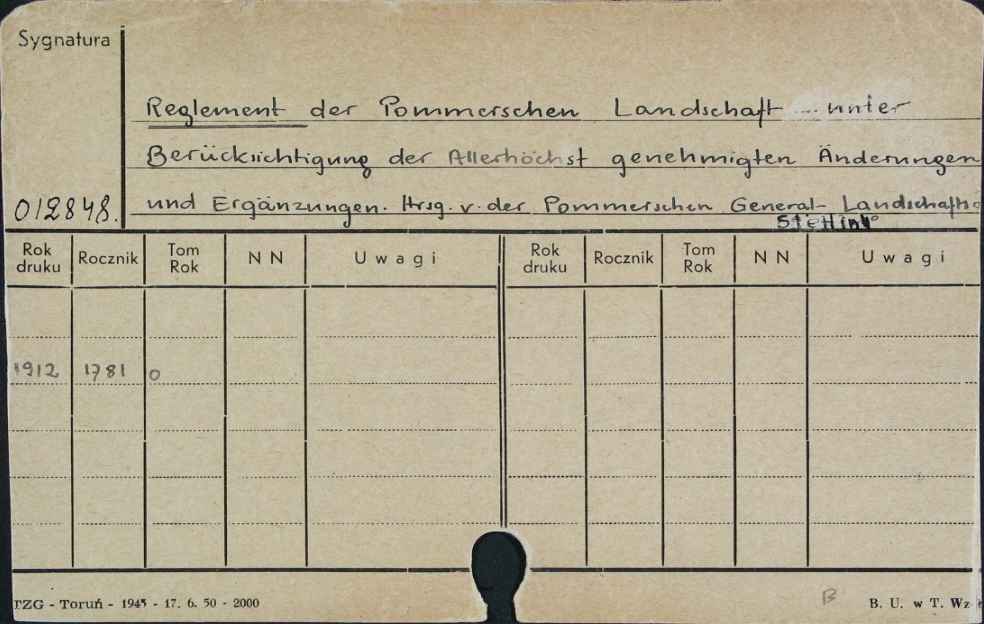 Sygnatura
Reglement der Pommerschen Landschaft ... unter
Berücksichtigung der Allerhöchst genehmigten Änderungen
012848. und Ergänzungen. Hrsg. v. der Pommerschen General- Landschafts.
Stettin 4°
Rok druku Rocznik Tom Rok N N Uwagi Rok druku Rocznik Tom Rok N N Uwagi
1912 1781 0
TZG - Toruń - 1945 - 17. 6. 50 - 2000 B B. U. w T. Wz